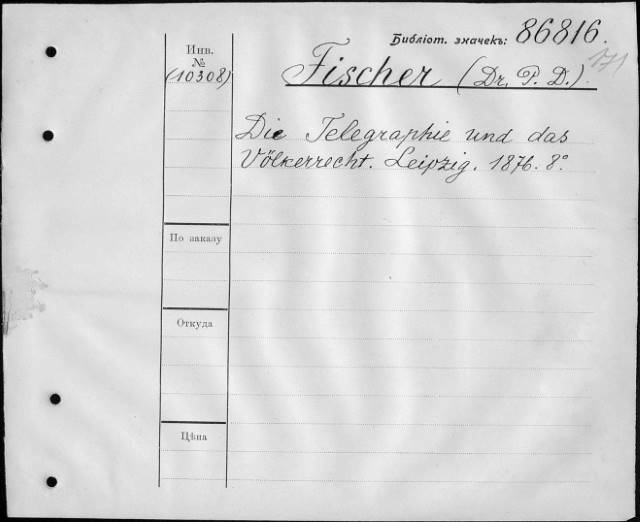 Библіот. значекъ: 86816.
171
Инв.
№
(10308)
Fischer (Dr. P. D.)
Die Telegraphie und das
Völkerrecht. Leipzig. 1876. 8°.
По заказу
Откуда
Цѣна